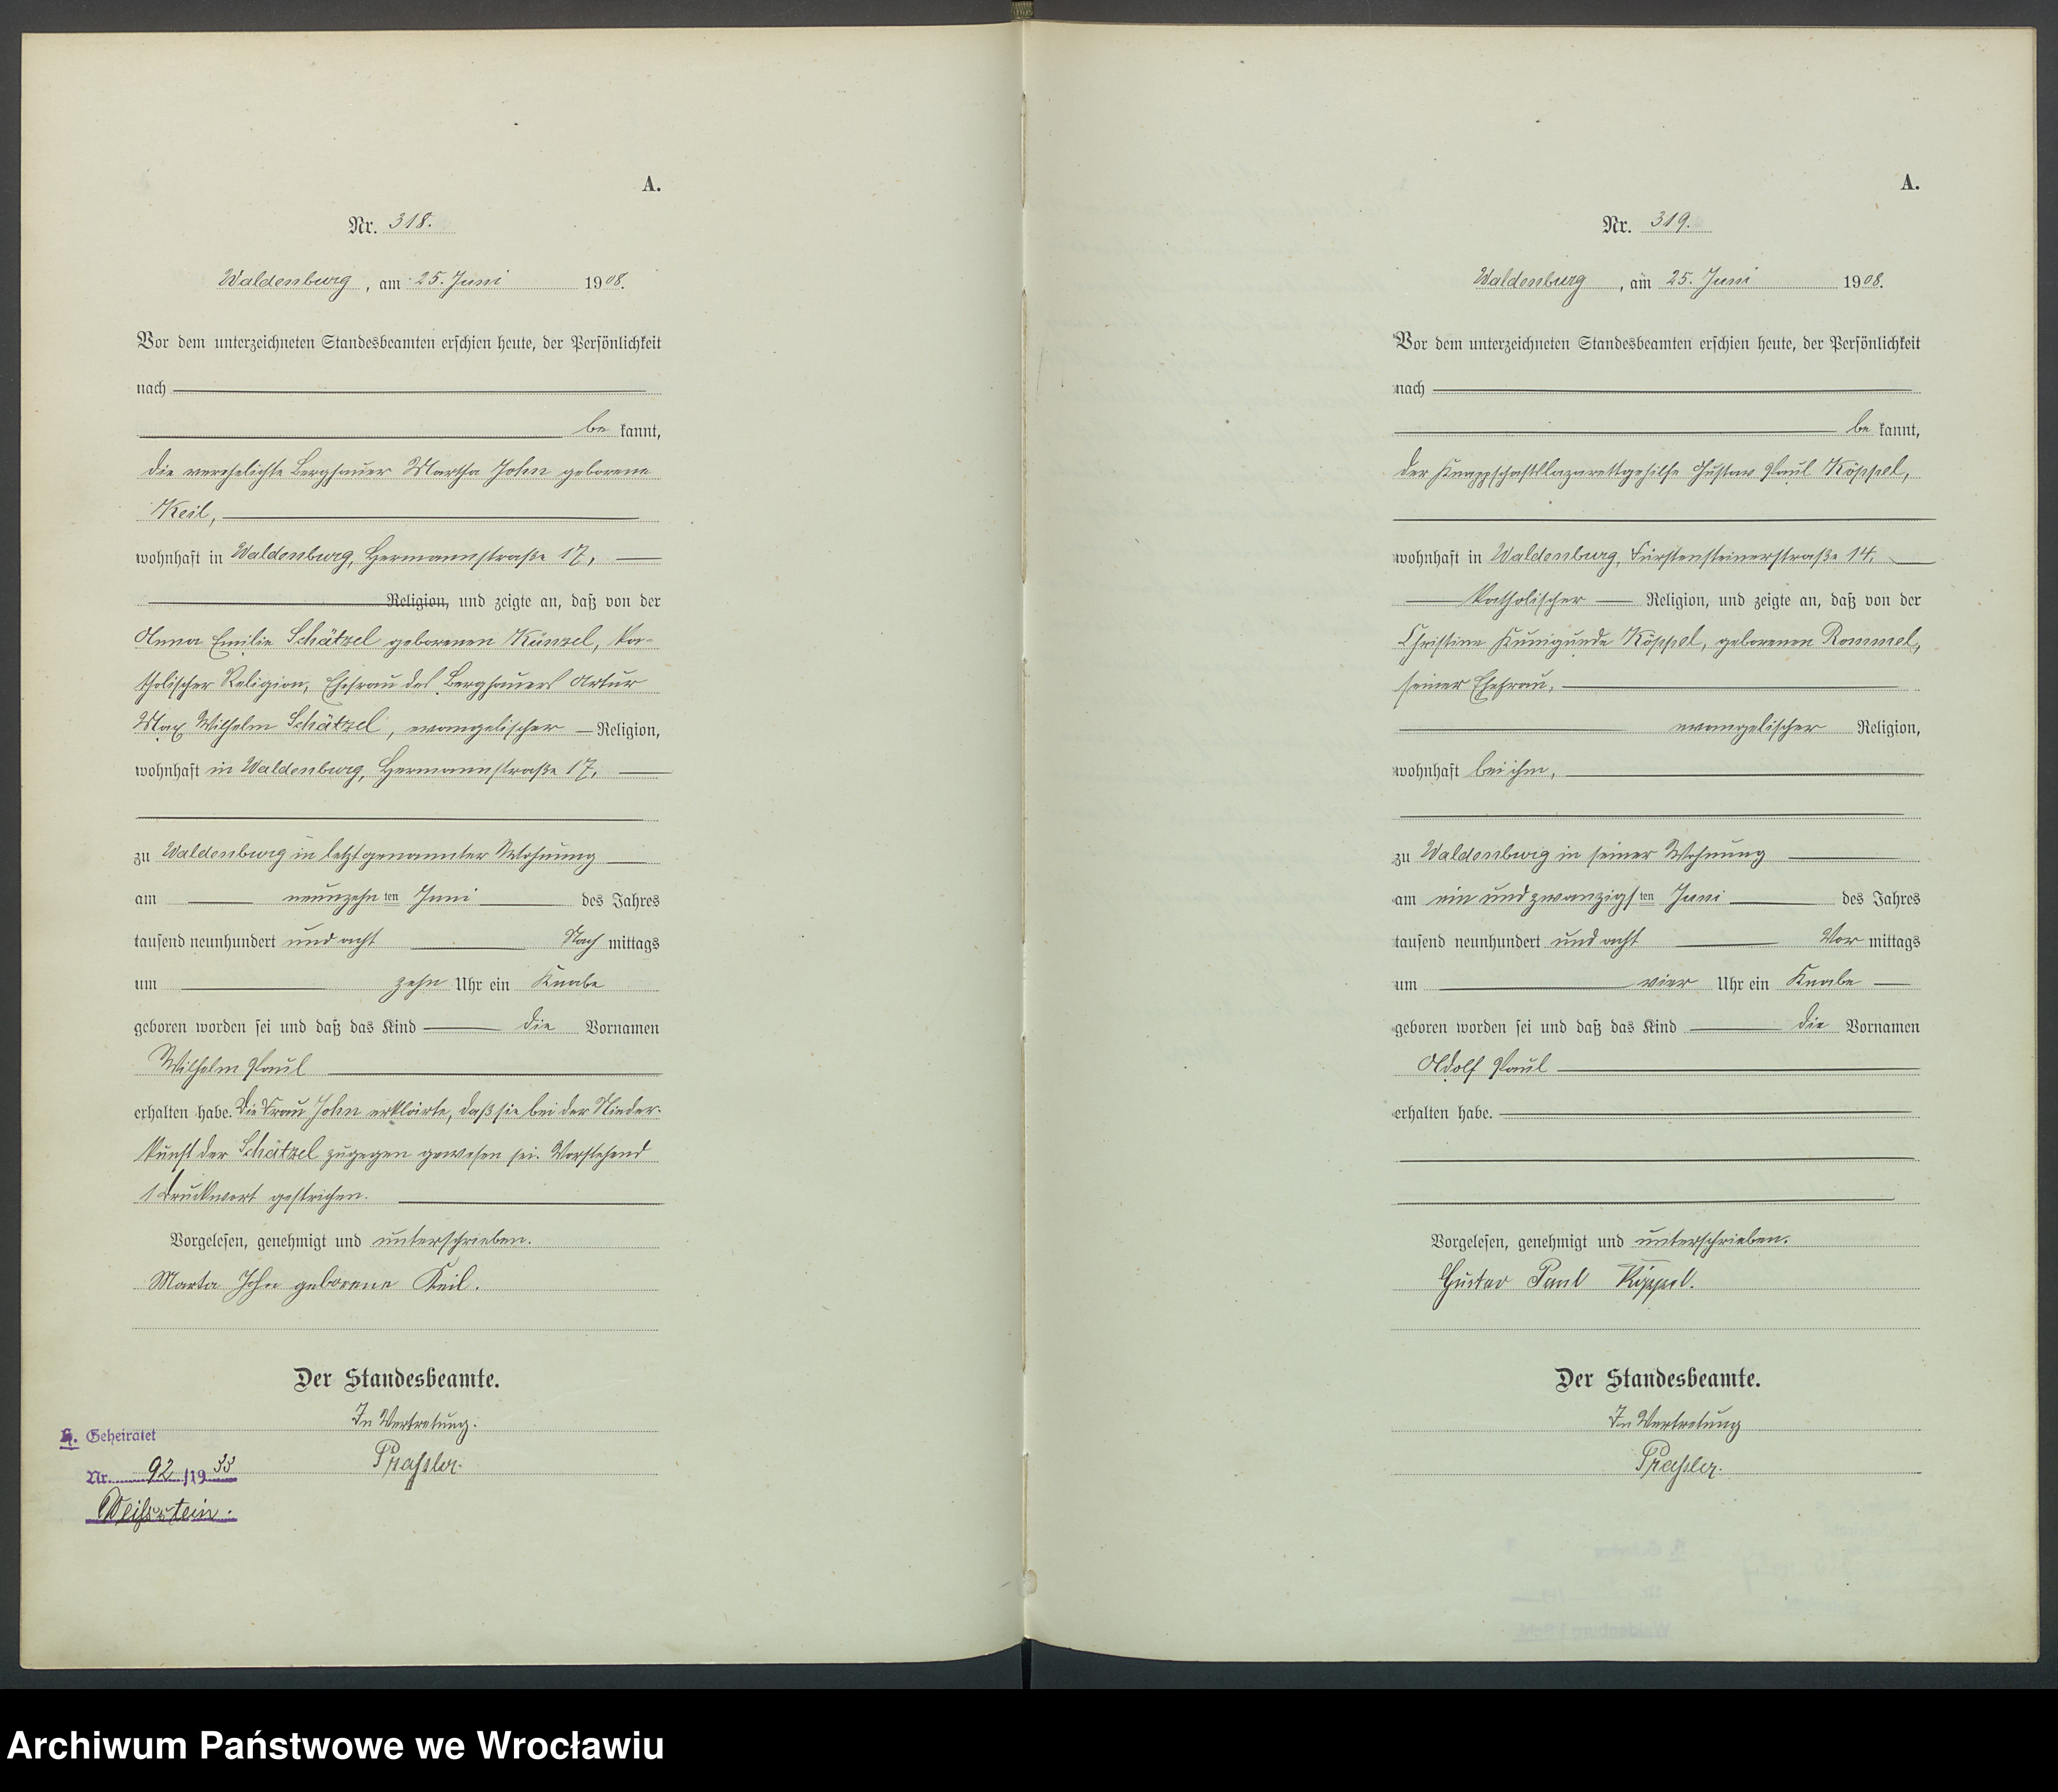 A.
Nr. 318.
Waldenburg, am 25. Juni 1908.
Vor dem unterzeichneten Standesbeamten erschien heute, der Persönlichkeit
nach
be kannt,
die verehelichte Berghauer Martha John geborene
Keil,
wohnhaft in Waldenburg, Hermannstraße 17,
Religion, und zeigte an, daß von der
Anna Emilie Schätzel geborenen Künzel, ka-
tholischer Religion, Ehefrau des Berghauers Artur
Max Wilhelm Schätzel, evangelischer Religion,
wohnhaft in Waldenburg, Hermannstraße 17,
zu Waldenburg in letztgenannter Wohnung
am neunzehn ten Juni des Jahres
tausend neunhundert und acht Nach mittags
um zehn Uhr ein Knabe
geboren worden sei und daß das Kind die Vornamen
Wilhelm Paul
erhalten habe. Die Frau John erklärte, daß sie bei der Nieder-
kunft der Schätzel zugegen gewesen sei. Vorstehend
1 Druckwort gestrichen.
Vorgelesen, genehmigt und unterschrieben.
Marta John geborene Keil.
Der Standesbeamte.
In Vertretung.
Prassler.
H. Geheiratet
Nr. 92/1933
Weißstein.
A.
Nr. 319.
Waldenburg, am 25. Juni 1908.
Vor dem unterzeichneten Standesbeamten erschien heute, der Persönlichkeit
nach
be kannt,
der Knappschaftslazarettgehilfe Gustav Paul Köppel,
wohnhaft in Waldenburg, Fürstensteinerstraße 14,
katholischer Religion, und zeigte an, daß von der
Christine Kunigunde Köppel, geborenen Rommel,
seiner Ehefrau,
evangelischer Religion,
wohnhaft bei ihm,
zu Waldenburg in seiner Wohnung
am ein und zwanzigs ten Juni des Jahres
tausend neunhundert und acht Vor mittags
um vier Uhr ein Knabe
geboren worden sei und daß das Kind die Vornamen
Adolf Paul
erhalten habe.
Vorgelesen, genehmigt und unterschrieben.
Gustav Paul Köppel.
Der Standesbeamte.
In Vertretung
Prassler.
Archiwum Państwowe we Wrocławiu